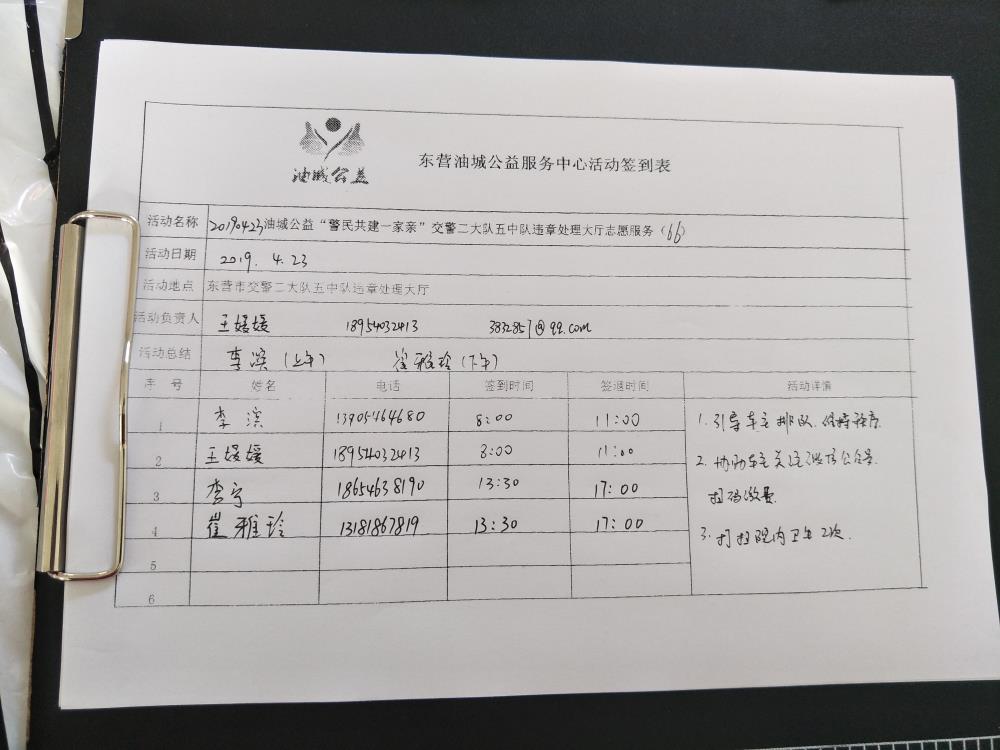 油城公益
东营油城公益服务中心活动签到表
活动名称 20190423油城公益“警民共建一家亲”交警二大队五中队违章处理大厅志愿服务（66）
活动日期 2019. 4. 23
活动地点 东营市交警二大队五中队违章处理大厅
活动负责人 王媛媛 18954032413 3832857@qq.com
活动总结 李滨（上午） 崔雅玲（下午）
序 号 姓名 电话 签到时间 签退时间 活动详情
1 李滨 13905464680 8:00 11:00 1. 引导车主排队. 保持秩序.
2 王媛媛 18954032413 8:00 11:00 2. 协助车主关注 公众号.
3 李宁 18654638190 13:30 17:00 扫码缴费.
4 崔雅玲 13181867819 13:30 17:00 3. 打扫院内卫生2次.
5
6